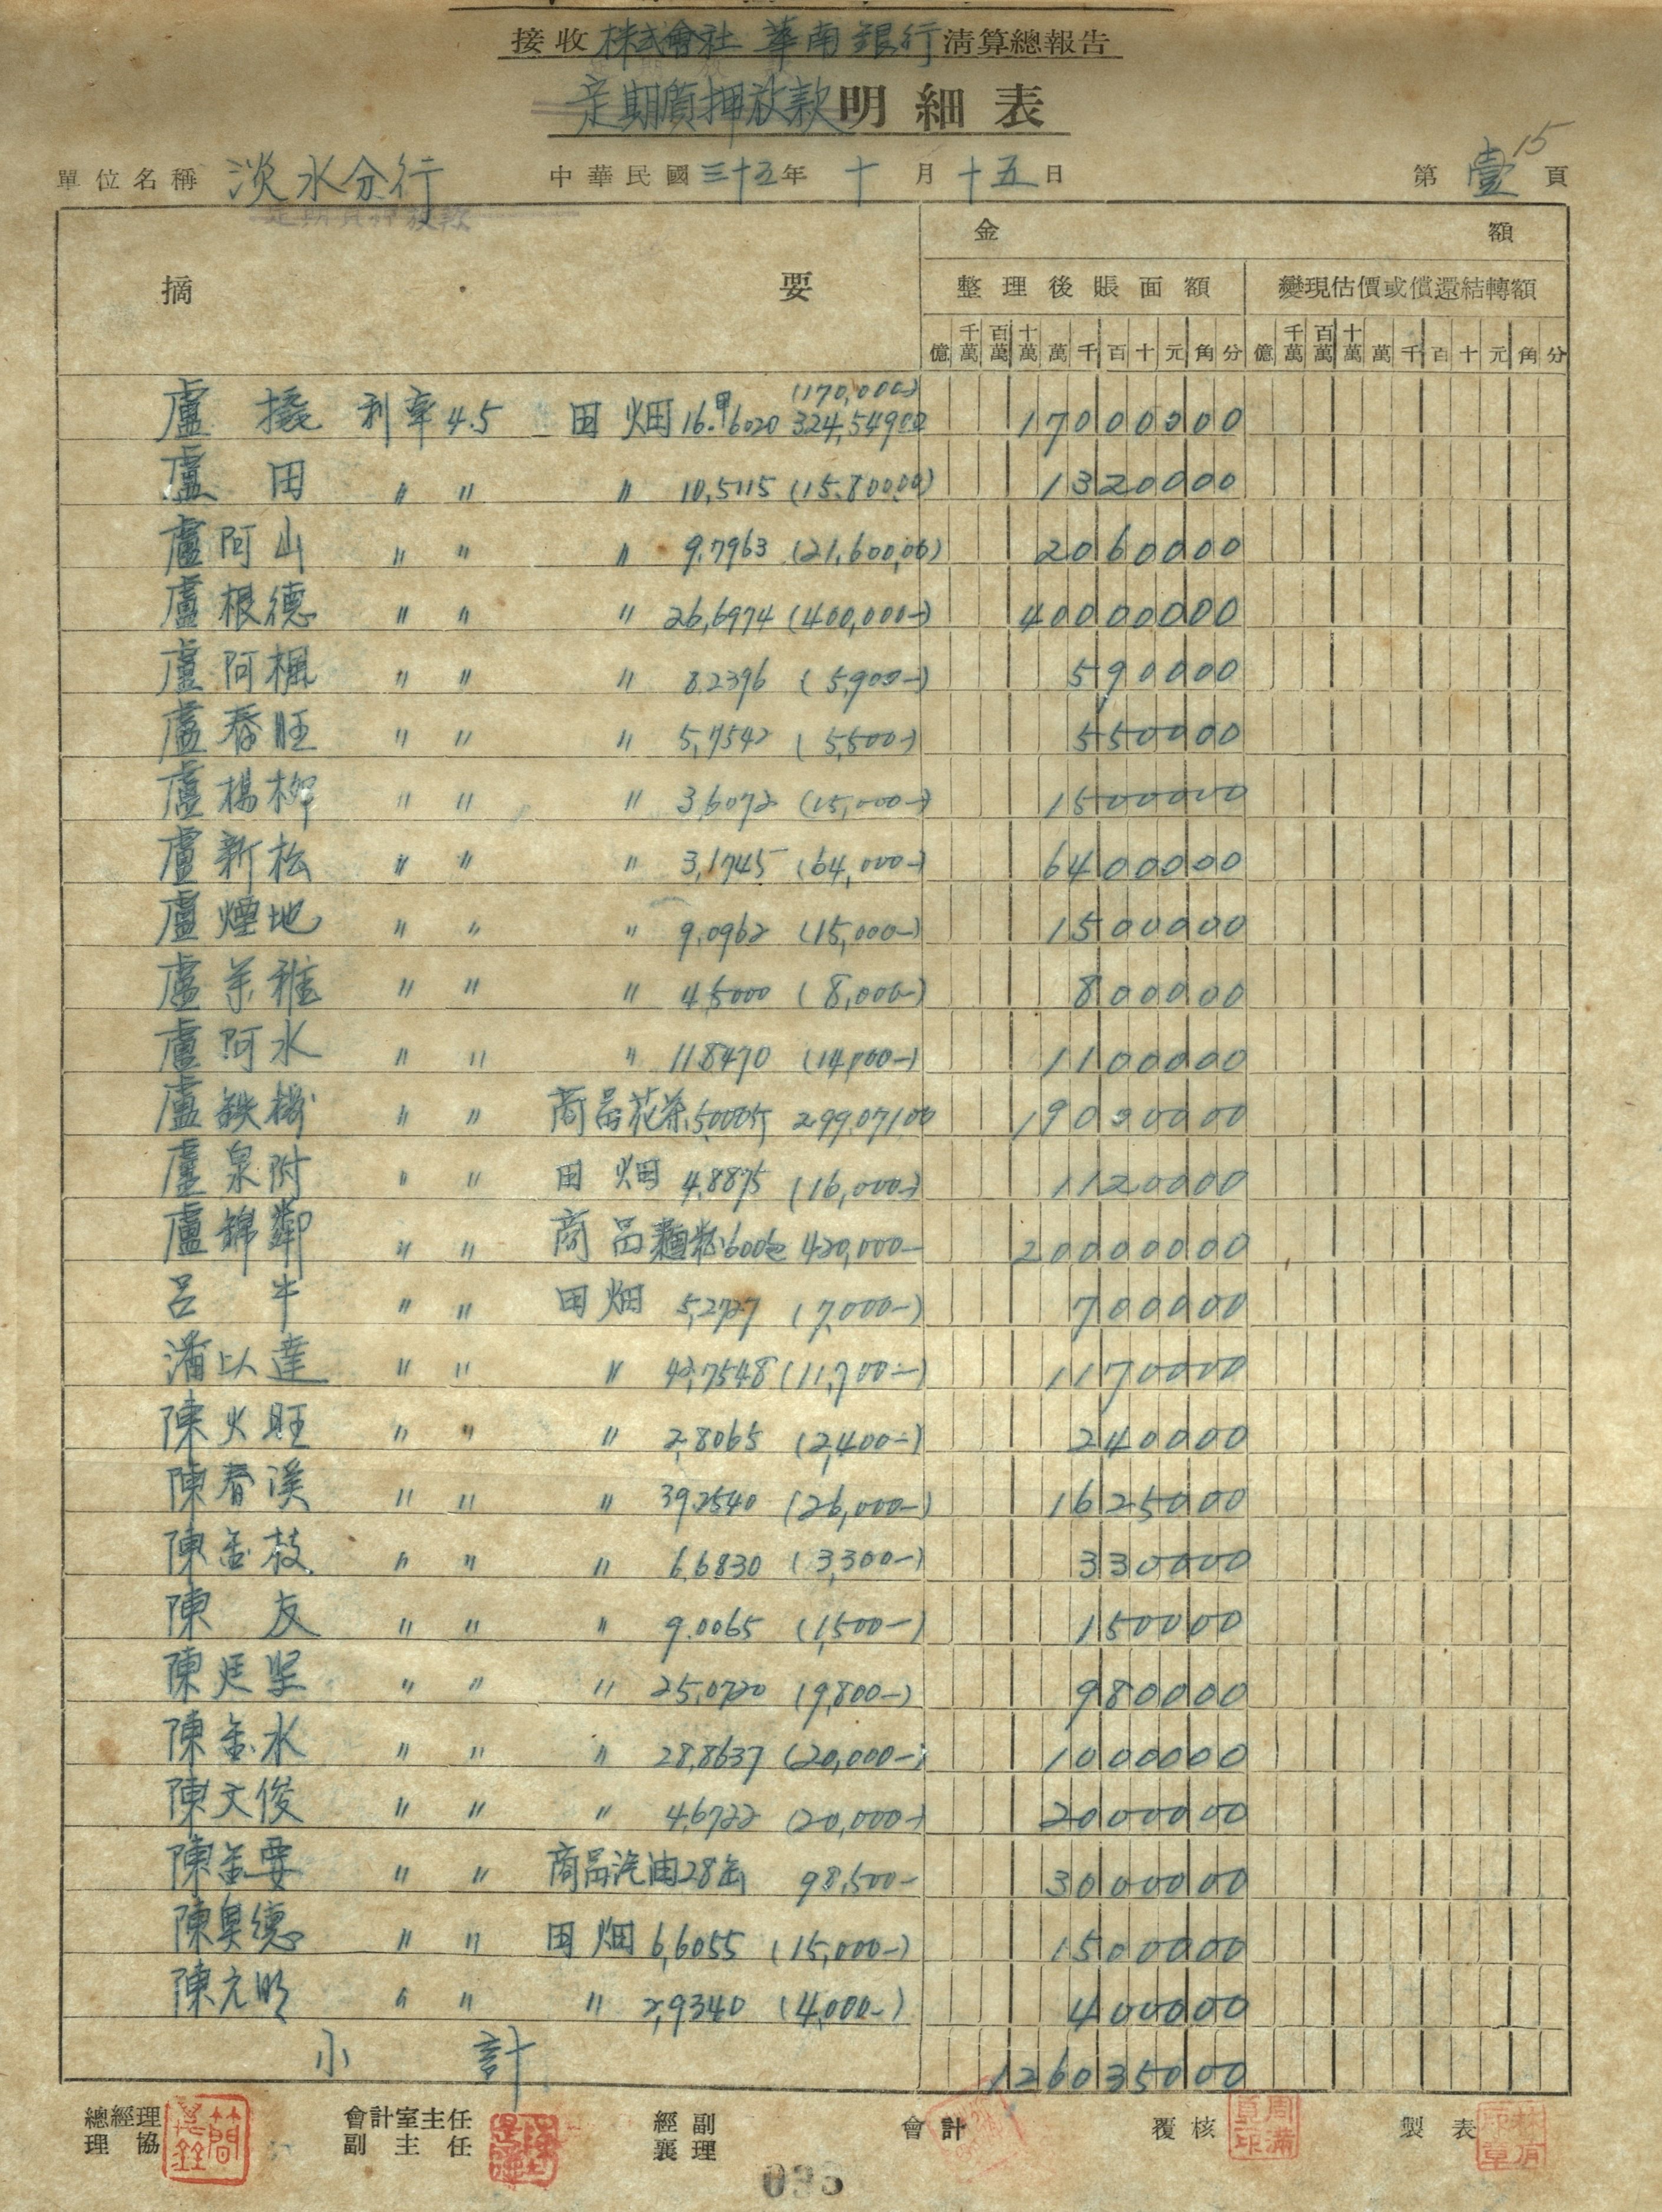 接收株式會社華南銀行清算總報告
定期質押放款明細表
15
單位名稱 淡水分行 中華民國三十五年十月十五日 第壹頁
定期質押放款
摘 要 金 額
整理後賬面額 變現估價或償還結轉額
億 千萬 百萬 十萬 萬 千 百 十 元 角 分 億 千萬 百萬 十萬 萬 千 百 十 元 角 分
(170,000-)
盧 撓 利率4.5 田 畑 16.甲6020 324,549.00 17000000
盧 田 〃 〃 〃 10,5115 (15,800.00) 1320000
盧阿山 〃 〃 〃 9,7963 (21,600.00) 2060000
盧根德 〃 〃 〃 26,6974 (400,000-) 40000000
盧阿楓 〃 〃 〃 8.2396 (5,900-) 590000
盧春旺 〃 〃 〃 5,7542 (5,500-) 550000
盧楊柳 〃 〃 〃 3,6072 (15,000-) 1500000
盧新松 〃 〃 〃 3,1745 (64,000-) 6400000
盧煙地 〃 〃 〃 9.0962 (15,000-) 1500000
盧 〃 〃 〃 4,5000 (8,000-) 800000
盧阿水 〃 〃 〃 11.8470 (14,000-) 1100000
盧鉄樹 〃 〃 商品花茶5,000斤 299,071.00 19000000
盧泉附 〃 〃 田 畑 4,8875 (16,000-) 1120000
盧錦鄰 〃 〃 商品麵粉600包 420,000- 20000000
呂 牛 〃 〃 田畑 5,2727 (7,000-) 700000
潘以達 〃 〃 〃 42,7548 (11,700-) 1170000
陳火旺 〃 〃 〃 2,8065 (2,400-) 240000
陳春溪 〃 〃 〃 39.2540 (26,000-) 1625000
陳金枝 〃 〃 〃 6,6830 (3,300-) 330000
陳 友 〃 〃 〃 9.0065 (1,500-) 150000
陳廷堅 〃 〃 〃 25,0720 (9,800-) 980000
陳金水 〃 〃 〃 28,8637 (20,000-) 1000000
陳文俊 〃 〃 〃 4,6722 (20,000-) 2000000
陳金要 〃 〃 商品汽油28缶 98,500- 3000000
陳興德 〃 〃 田 畑 6,6055 (15,000-) 1500000
陳元明 〃 〃 〃 2,9340 (4,000-) 400000
小 計 126035000
總經理 會計室主任 經副 會計 覆核 製表
理協 副主任 襄理
036